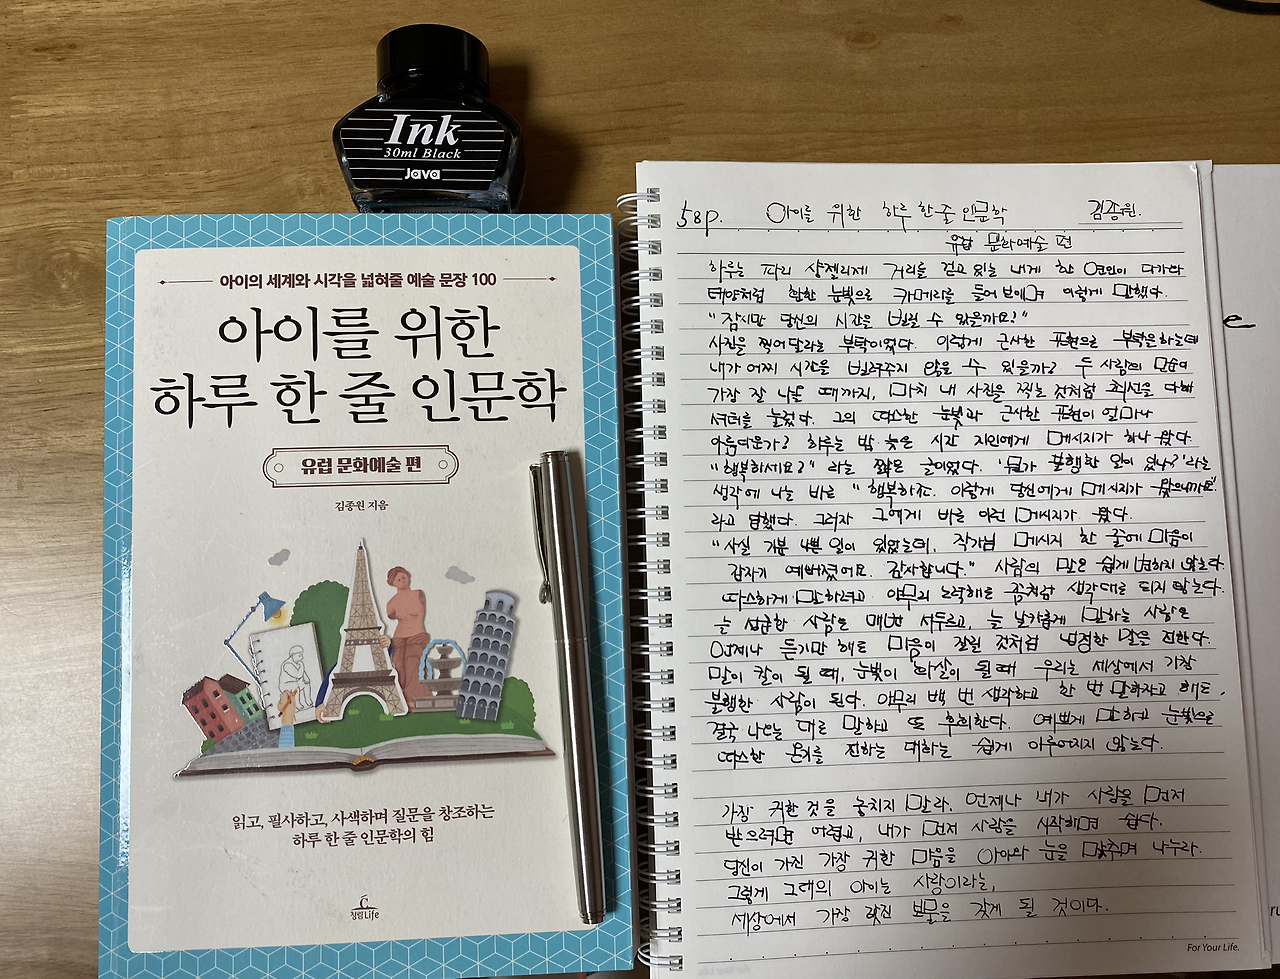 Ink
30ml Black
Java
아이의 세계와 시각을 넓혀줄 예술 문장 100
아이를 위한
하루 한 줄 인문학
유럽 문화예술 편
김종원 지음
읽고, 필사하고, 사색하며 질문을 창조하는
하루 한 줄 인문학의 힘
청림Life
58p. 아이를 위한 하루 한 줄 인문학 김종원.
유럽 문화예술 편
하루는 파리 샹젤리제 거리를 걷고 있는 내게 한 연인이 다가와
태양처럼 환한 눈빛으로 카메라를 들어 보이며 이렇게 말했다.
"잠시만 당신의 시간을 빌릴 수 있을까요?"
사진을 찍어달라는 부탁이었다. 이렇게 근사한 표현으로 부탁을 하는데
내가 어찌 시간을 빌려주지 않을 수 있을까? 두 사람의 모습이
가장 잘 나올 때까지, 마치 내 사진을 찍는 것처럼 최선을 다해
셔터를 눌렀다. 그의 따스한 눈빛과 근사한 표현이 얼마나
아름다운가? 하루는 밤 늦은 시간 지인에게 메시지가 하나 왔다.
"행복하세요?" 라는 짧은 글이었다. '뭔가 불행한 일이 있나?'라는
생각에 나는 바로 "행복하죠. 이렇게 당신에게 메시지가 왔으니까요."
라고 답했다. 그러자 그에게 바로 이런 메시지가 왔다.
"사실 기분 나쁜 일이 있었는데, 작가님 메시지 한 줄에 마음이
갑자기 예뻐졌어요. 감사합니다." 사람의 말은 쉽게 변하지 않는다.
따스하게 말하려고 아무리 노력해도 좀처럼 생각대로 되지 않는다.
늘 성급한 사람은 매번 서두르고, 늘 날카롭게 말하는 사람은
언제나 듣기만 해도 마음이 잘릴 것처럼 냉정한 말을 전한다.
말이 칼이 될 때, 눈빛이 화살이 될 때 우리는 세상에서 가장
불행한 사람이 된다. 아무리 백 번 생각하고 한 번 말하자고 해도,
결국 나오는 대로 말하고 또 후회한다. 예쁘게 말하고 눈빛으로
따스한 온기를 전하는 대화는 쉽게 이루어지지 않는다.
가장 귀한 것을 놓치지 말라. 언제나 내가 사랑을 먼저
받으려면 어렵고, 내가 먼저 사랑을 시작하면 쉽다.
당신이 가진 가장 귀한 마음을 아이와 눈을 맞추며 나누라.
그렇게 그대의 아이는 사랑이라는,
세상에서 가장 값진 보물을 갖게 될 것이다.
For Your Life.
e